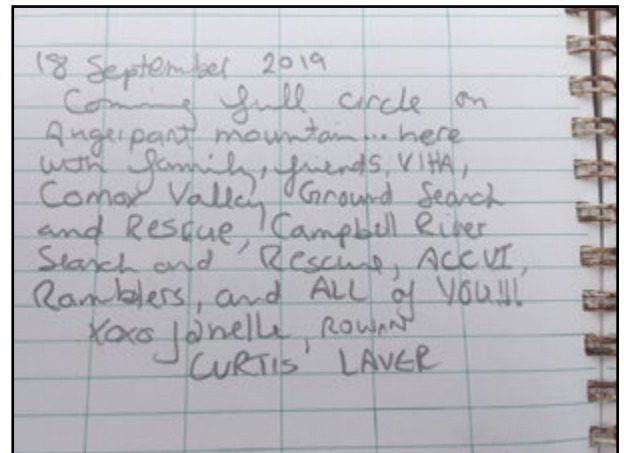 18 September 2019
Coming full circle on
Angerpart mountain... here
with family, friends, VIHA,
Comox Valley Ground Search
and Rescue, Campbell River
Search and Rescue, ACCVI,
Ramblers, and ALL of YOU!!!
xoxo Janelle, ROWAN
CURTIS LAVER